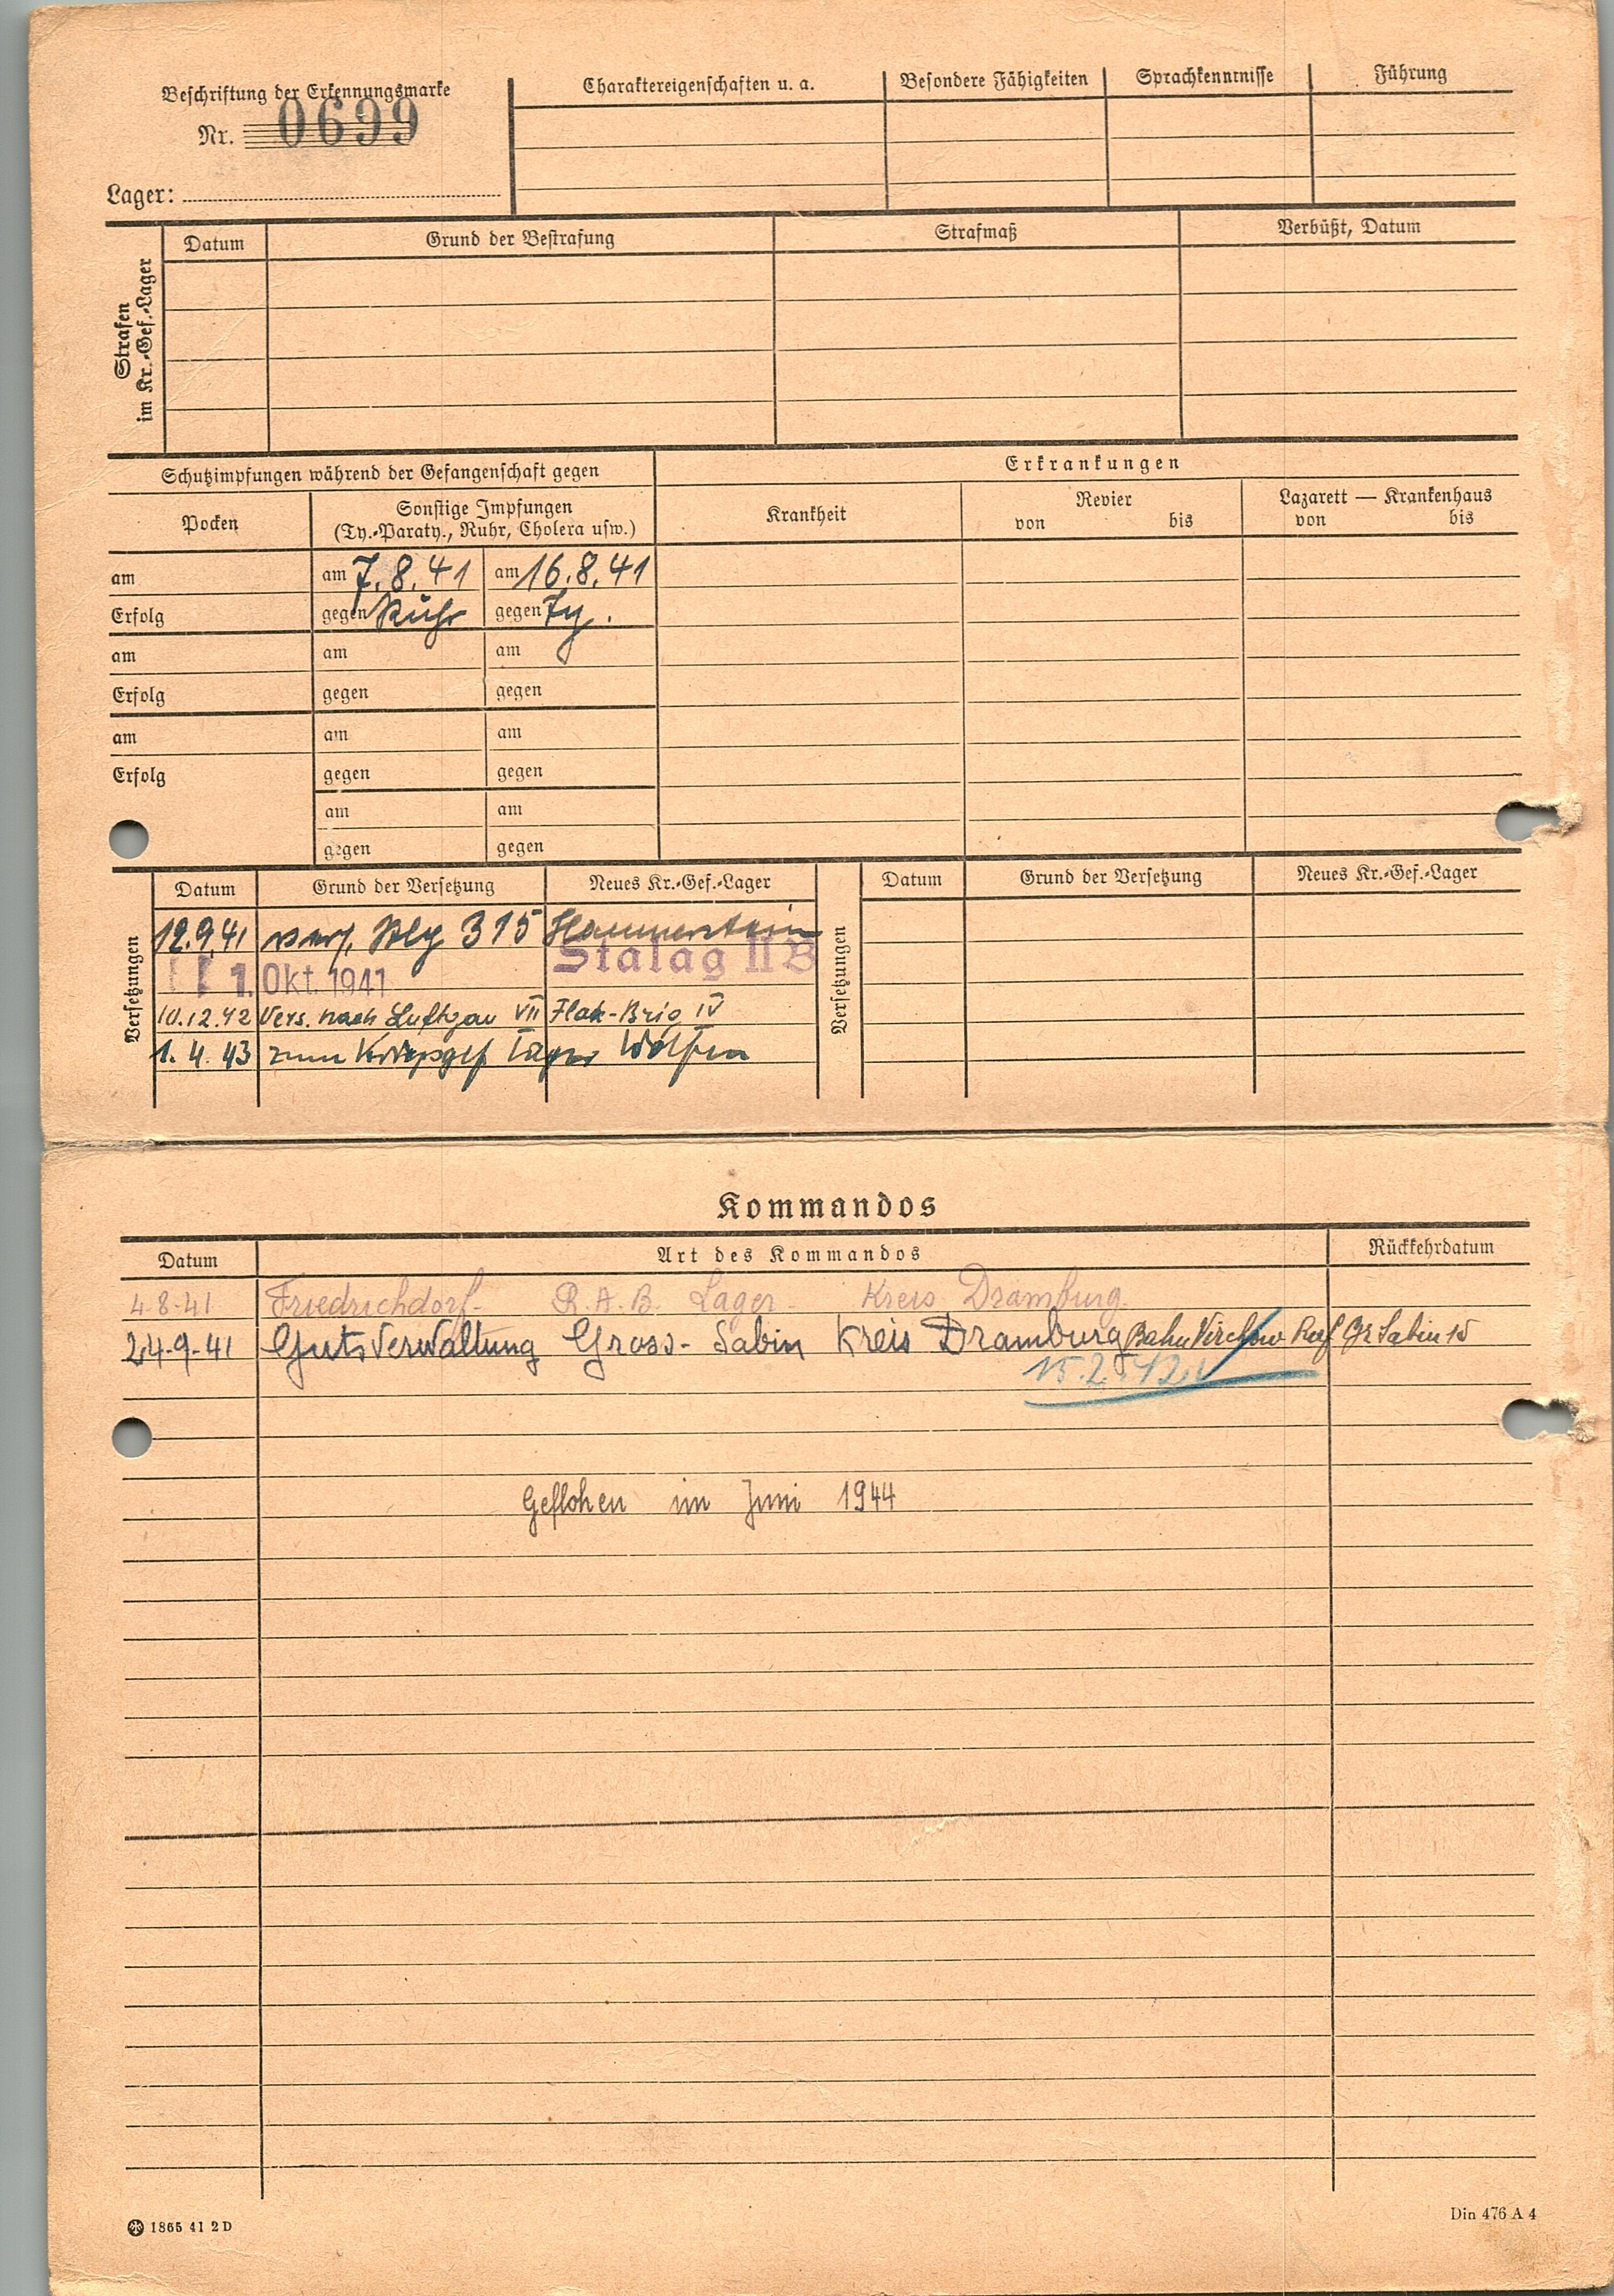 Beschriftung der Erkennungsmarke
Nr. 0699
Lager:
Charaktereigenschaften u. a.
Besondere Fähigkeiten
Sprachkenntnisse
Führung
Strafen
im Kr.-Gef.-Lager
Datum
Grund der Bestrafung
Strafmaß
Verbüßt, Datum
Schutzimpfungen während der Gefangenschaft gegen
Erkrankungen
Pocken
Sonstige Impfungen
(Ty.-Paraty., Ruhr, Cholera usw.)
Krankheit
Revier
von bis
Lazarett — Krankenhaus
von bis
am am 7.8.41 am 16.8.41
Erfolg gegen Ruhr gegen Ty.
am am am
Erfolg gegen gegen
am am am
Erfolg gegen gegen
am am
gegen gegen
Versetzungen
Datum Grund der Versetzung Neues Kr.-Gef.-Lager
12.9.41 315 Hammerstein
1. Okt. 1941 Stalag II B
10.12.42 Vers. nach Luftgau VII Flak-Brig IV
1. 4. 43 zum Kriegsgef Lager Wolfen
Versetzungen
Datum Grund der Versetzung Neues Kr.-Gef.-Lager
Kommandos
Datum Art des Kommandos Rückkehrdatum
4-8-41 Friedrichdorf- R.A.B. Lager- Kreis Dramburg.
24-9-41 Guts Verwaltung Gross-Sabin Kreis Dramburg Bahn Virchow Ruf Gr Sabin 15
15.2.42
Geflohen im Juni 1944
1865 41 2 D
Din 476 A 4